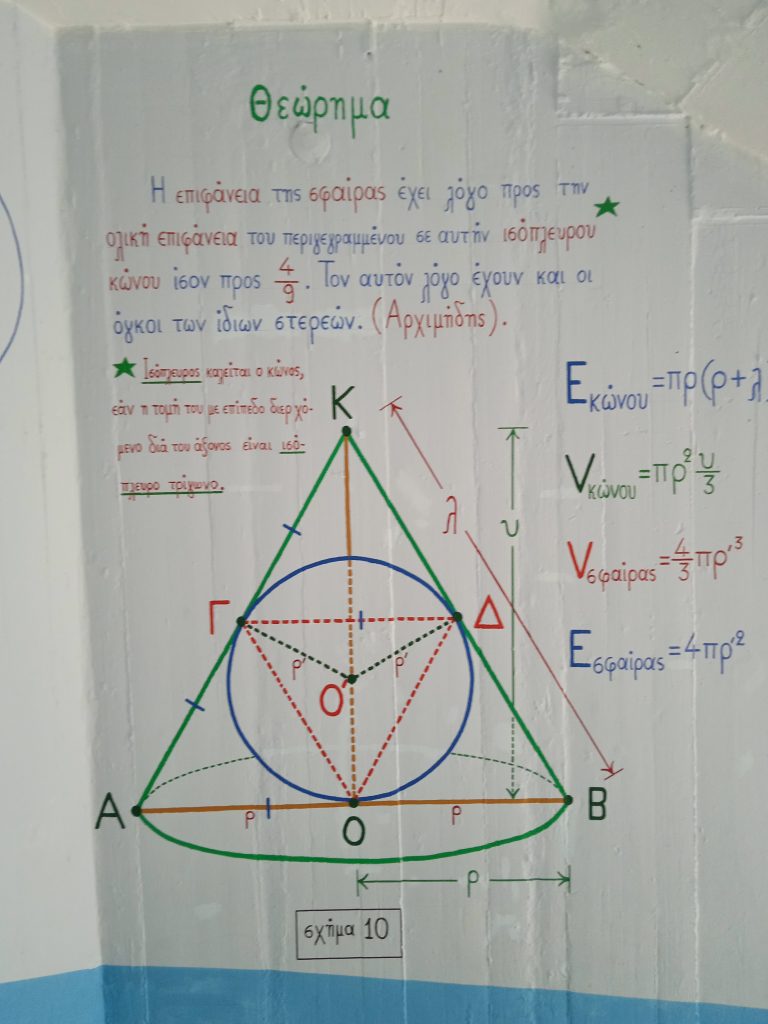 Θεώρημα
Η επιφάνεια της σφαίρας έχει λόγο προς την ★
ολική επιφάνεια του περιγεγραμμένου σε αυτήν ισόπλευρου
κώνου ίσον προς 4/9. Τον αυτόν λόγο έχουν και οι
όγκοι των ίδιων στερεών. (Αρχιμήδης).
★ Ισόπλευρος καλείται ο κώνος,
εάν η τομή του με επίπεδο διερχό-
μενο διά του άξονος είναι ισό-
πλευρο τρίγωνο.
Eκώνου=πρ(ρ+λ)
Vκώνου=πρ²υ/3
Vσφαίρας=4/3πρ'³
Eσφαίρας=4πρ'²
Κ
λ
υ
Γ
Δ
ρ'
ρ'
Ο'
Α
ρ
Ο
ρ
Β
ρ
σχήμα 10